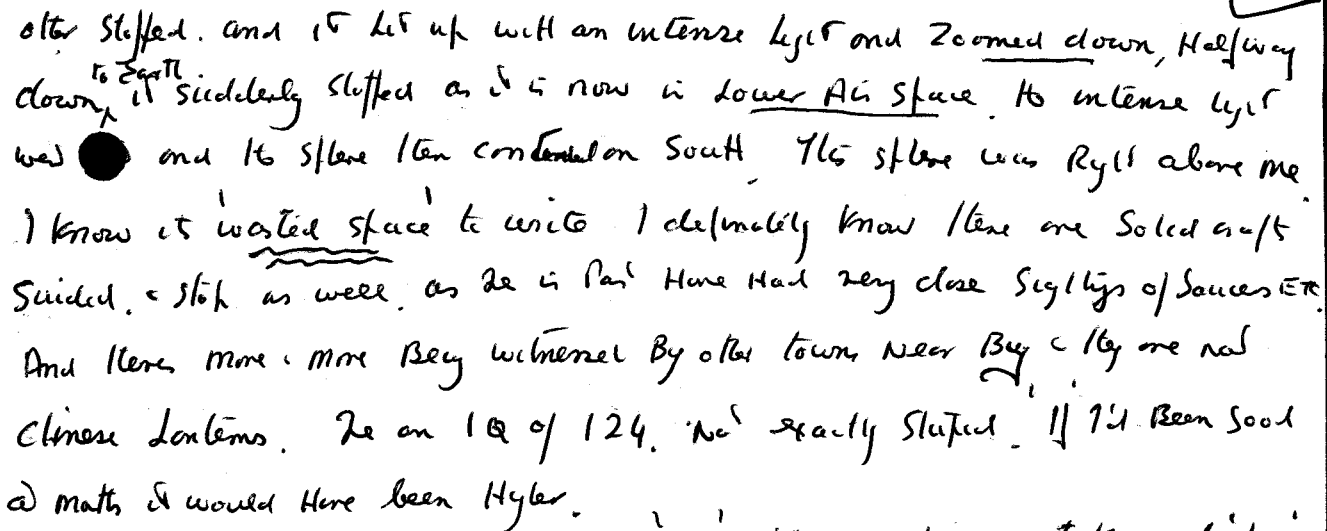 other stopped. and it lit up with an intense light and Zoomed down, Halfway
down to Earth, it suddenly stopped as it is now in Lower Air Space. The intense light
was and the sphere then continued on South. This sphere was Right above me.
I know it's 'wasted space' to write I definately know there are Solid craft
Guided. & stop as well. as I've in Past Have Had very close Sightings of Saucers ETC.
And there's more & more Being witnessed By other towns Near & they are not
Chinese Lanterns. I've an IQ of 124. Not exactly Stupid. If I'd Been Good
@ maths it would Have been Higher.